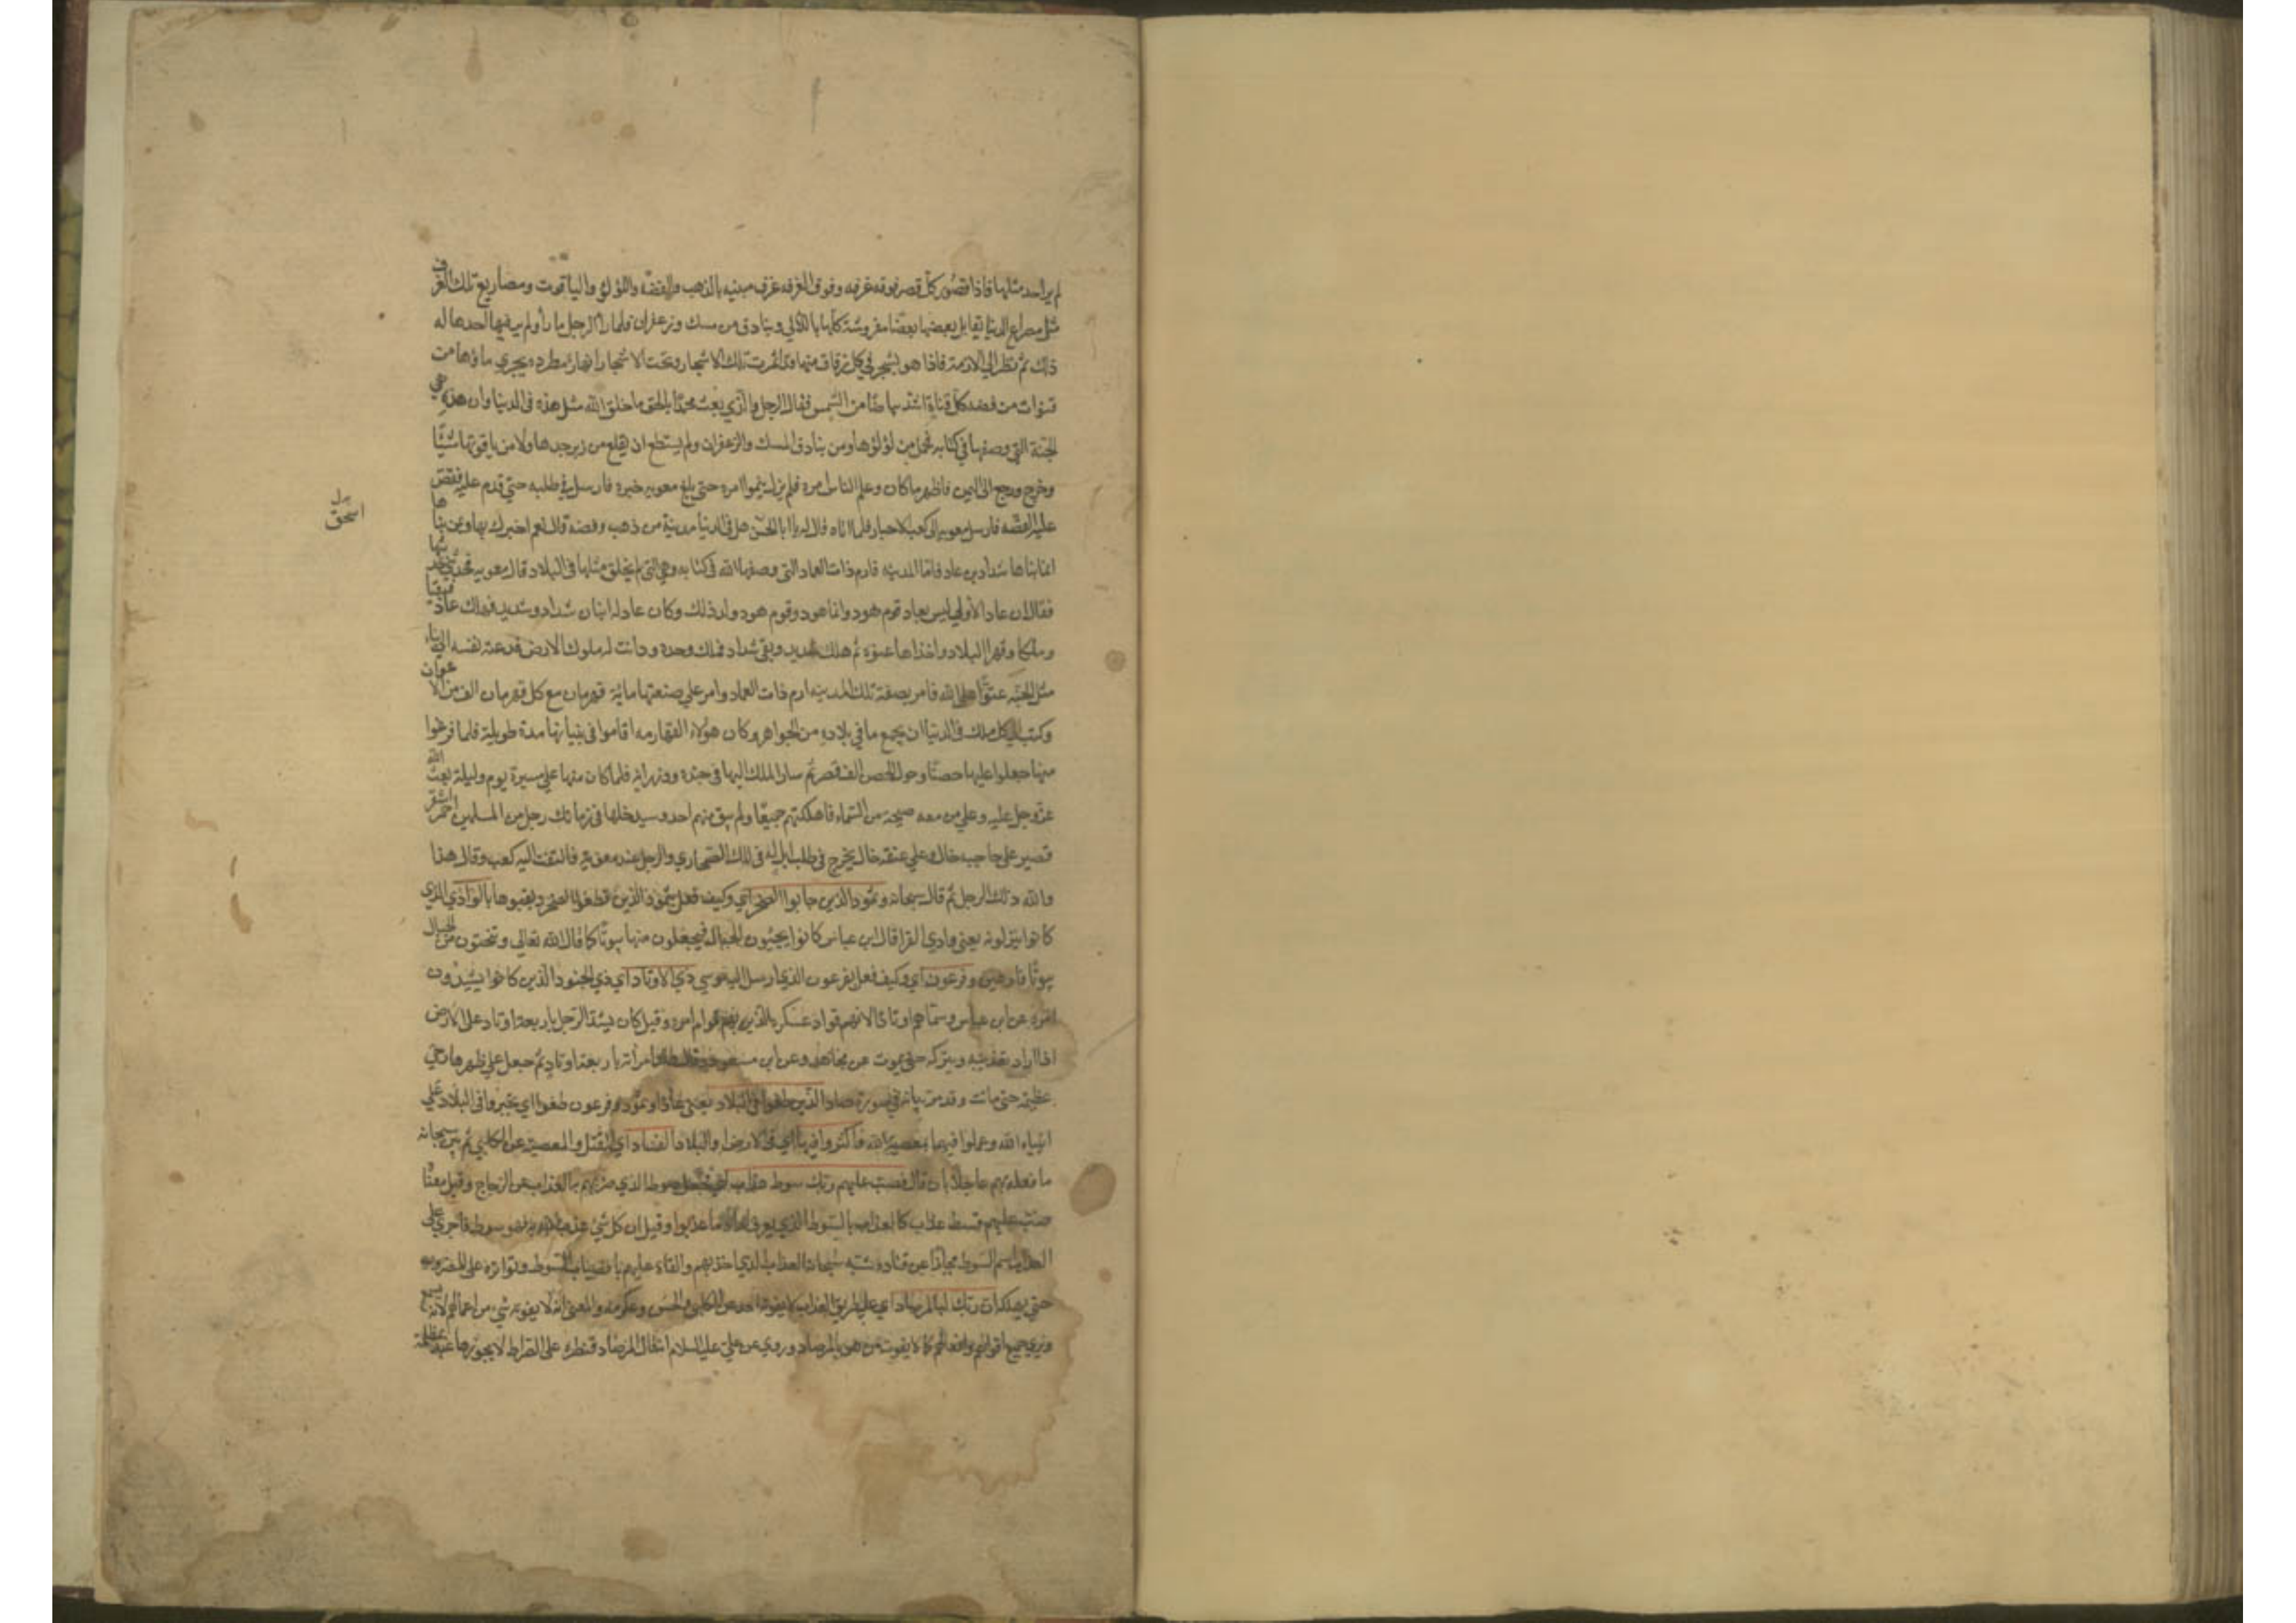 لم ير احد مثلها فاذا قصور كل قصر فوقه غرفه وفوق الغرفه غرف مبنيه بالذهب والفضه واللؤلؤ والياقوت ومصاريع تلك الغرف
مثل مصراع المدينا يقابل بعضها بعضا مفروشة كلها باللآلي وبنادق من مسك وزعفران فلما رأ الرجل ما رأ ولم ير فيها احدها له
ذلك ثم نظر الي الازمة فاذا هو بشجر في كل زقاق منها قد اثمرت تلك الاشجار وتحت الاشجار انهار مطرده يجري ماؤها من
قنوات من فضه كل قناة اشد بياضا من الشمس فقال الرجل والذي بعث محمدا بالحق ما خلق الله مثل هذه في الدنيا وان هذه هي
الجنة التي وصفها في كتابه فحمل من لؤلؤها ومن بنادق المسك والزعفران ولم يستطع ان يقلع من زبرجدها ولا من ياقوتها شيئا
وخرج ورجع الى اليمن فاظهر ما كان وعلم الناس امره فلم يزل ينموا امره حتى بلغ معويه خبره فارسل في طلبه حتي قدم عليه فقص
عليه القصه فارسل معويه الى كعب الاحبار فلما اتاه قال له يا ابا اسحق هل في الدنيا مدينة من ذهب وفضه قال نعم اخبرك بها وبمن بناها
انما بناها شداد بن عاد فاما المدينه فارم ذات العماد التي وصفها الله في كتابه وهي التي لم يخلق مثلها في البلاد قال معويه فحدثني حديثها
فقال ان عاد الأولي ليس بعاد قوم هود وانما هود وقوم هود ولد ذلك وكان عاد له ابنان شداد وشديد فهلك عاد فبقيا
وملكا وقهرا البلاد واخذاها عنوه ثم هلك شديد وبقي شداد فملك وحده ودانت له ملوك الارض فدعته نفسه الي بناء
مثل الجنه عتوا على الله فامر بصنعة تلك المدينه ارم ذات العماد وامر علي صنعتها مائة قهرمان مع كل قهرمان الف من الاعوان
وكتب الي كل ملك في الدنيا ان يجمع ما في بلاده من الجواهر وكان هؤلاء القهارمه اقاموا في بنيانها مدة طويلة فلما فرغوا
منها جعلوا عليها حصنا وحول الحصن الف قصر ثم سار الملك اليها في جنده ووزرائه فلما كان منها علي مسيرة يوم وليلة بعث الله
عز وجل عليه وعلي من معه صيحه من السماء فاهلكتهم جميعا ولم يبق منهم احد وسيدخلها في زمانك رجل من المسلمين احمر اشقر
قصير على حاجبه خال وعلي عنقه خال يخرج في طلب ابل له في تلك الصحاري والرجل عند معويه فالتفت اليه كعب وقال هذا
والله ذلك الرجل ثم قال سبحانه وثمود الذين جابوا الصخر اي وكيف فعل بثمود الذين قطعوا الصخر ونقبوها بالواد اي الذي
كانوا ينزلونه يعني وادي القرا قال ابن عباس كانوا يجيبون الجبال فيجعلون منها بيوتا كما قال الله تعالي وتنحتون من الجبال
بيوتا فارهين وفرعون اي وكيف فعل بفرعون الذي ارسل اليه موسي ذي الاوتاد اي ذي الجنود الذين كانوا يشيدون
امره عن ابن عباس وسماهم اوتادا لانهم قواد عسكره الذين بهم قوام امره وقيل كان يشد الرجل باربعة اوتاد على الارض
اذا اراد تعذيبه ويتركه حتى يموت عن مجاهد وعن ابن مسعود قال امراته باربعة اوتاد ثم جعل علي ظهرها رحي
عظيمه حتى ماتت وقد مر بيانه في سورة صاد الذين طغوا في البلاد يعني عادا وثمود وفرعون طغوا اي تجبروا في البلاد علي
انبياء الله وعملوا فيها بمعصية الله فاكثروا فيها اي في الارض والبلاد الفساد اي القتل والمعصية عن الكلبي ثم بين سبحانه
ما فعله بهم عاجلا بان قال فصب عليهم ربك سوط عذاب سوطا الذي ضربهم به العذاب عن الزجاج وقيل معناه
صب عليهم قسط عذاب كالعذاب بالسوط الذي يعرف ما عذبوا وقيل ان كل شئ عذب الله به فهو سوط فاجري على
العذاب اسم السوط مجازا عن قتاده شبه سبحانه العذاب الذي اخذ بهم والقاه عليهم بانصباب السوط وتواتره على المضروب
حتى يهلك ان ربك لبالمرصاد اي علي طريق العذاب لا يفوته احد عن الكلبي والحسن وعكرمه والمعنى انه لا يفوته شئ من اعمالهم لانه يسمع
ويري جميع اقوالهم وافعالهم كما لا يفوت من هو بالمرصاد وروي عن علي عليه السلام انه قال المرصاد قنطره على الصراط لا يجوزها عبد بمظلمة
بدل
اسحق